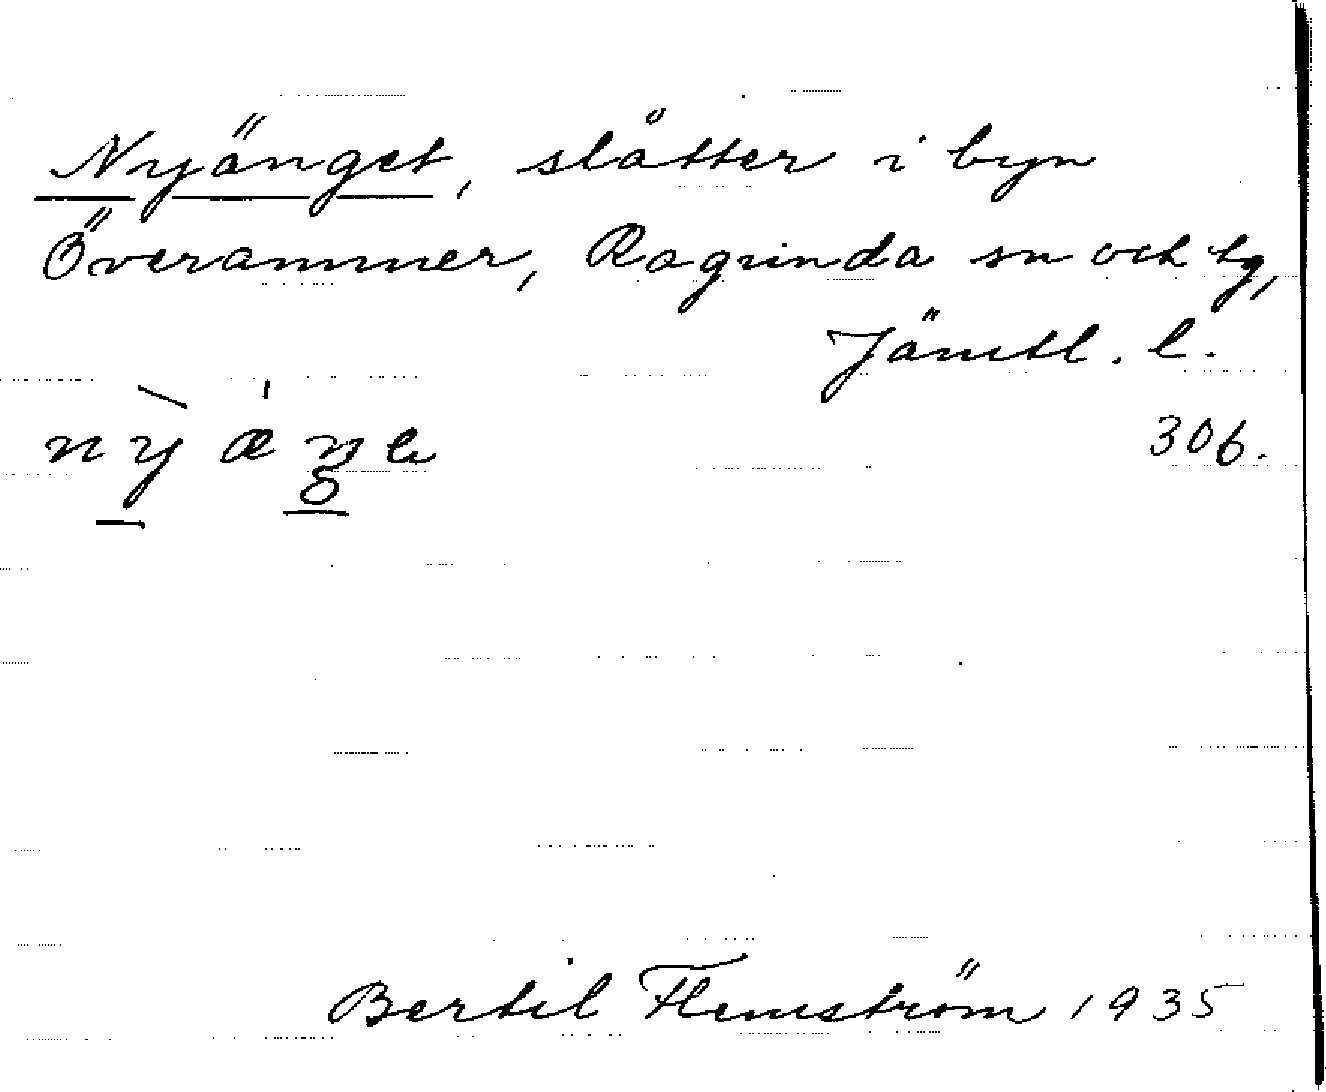 Nyänget, slåtter i byn
Överammer, Ragunda sn och tg,
Jämtl. l.
306.
Bertil Flemström 1935